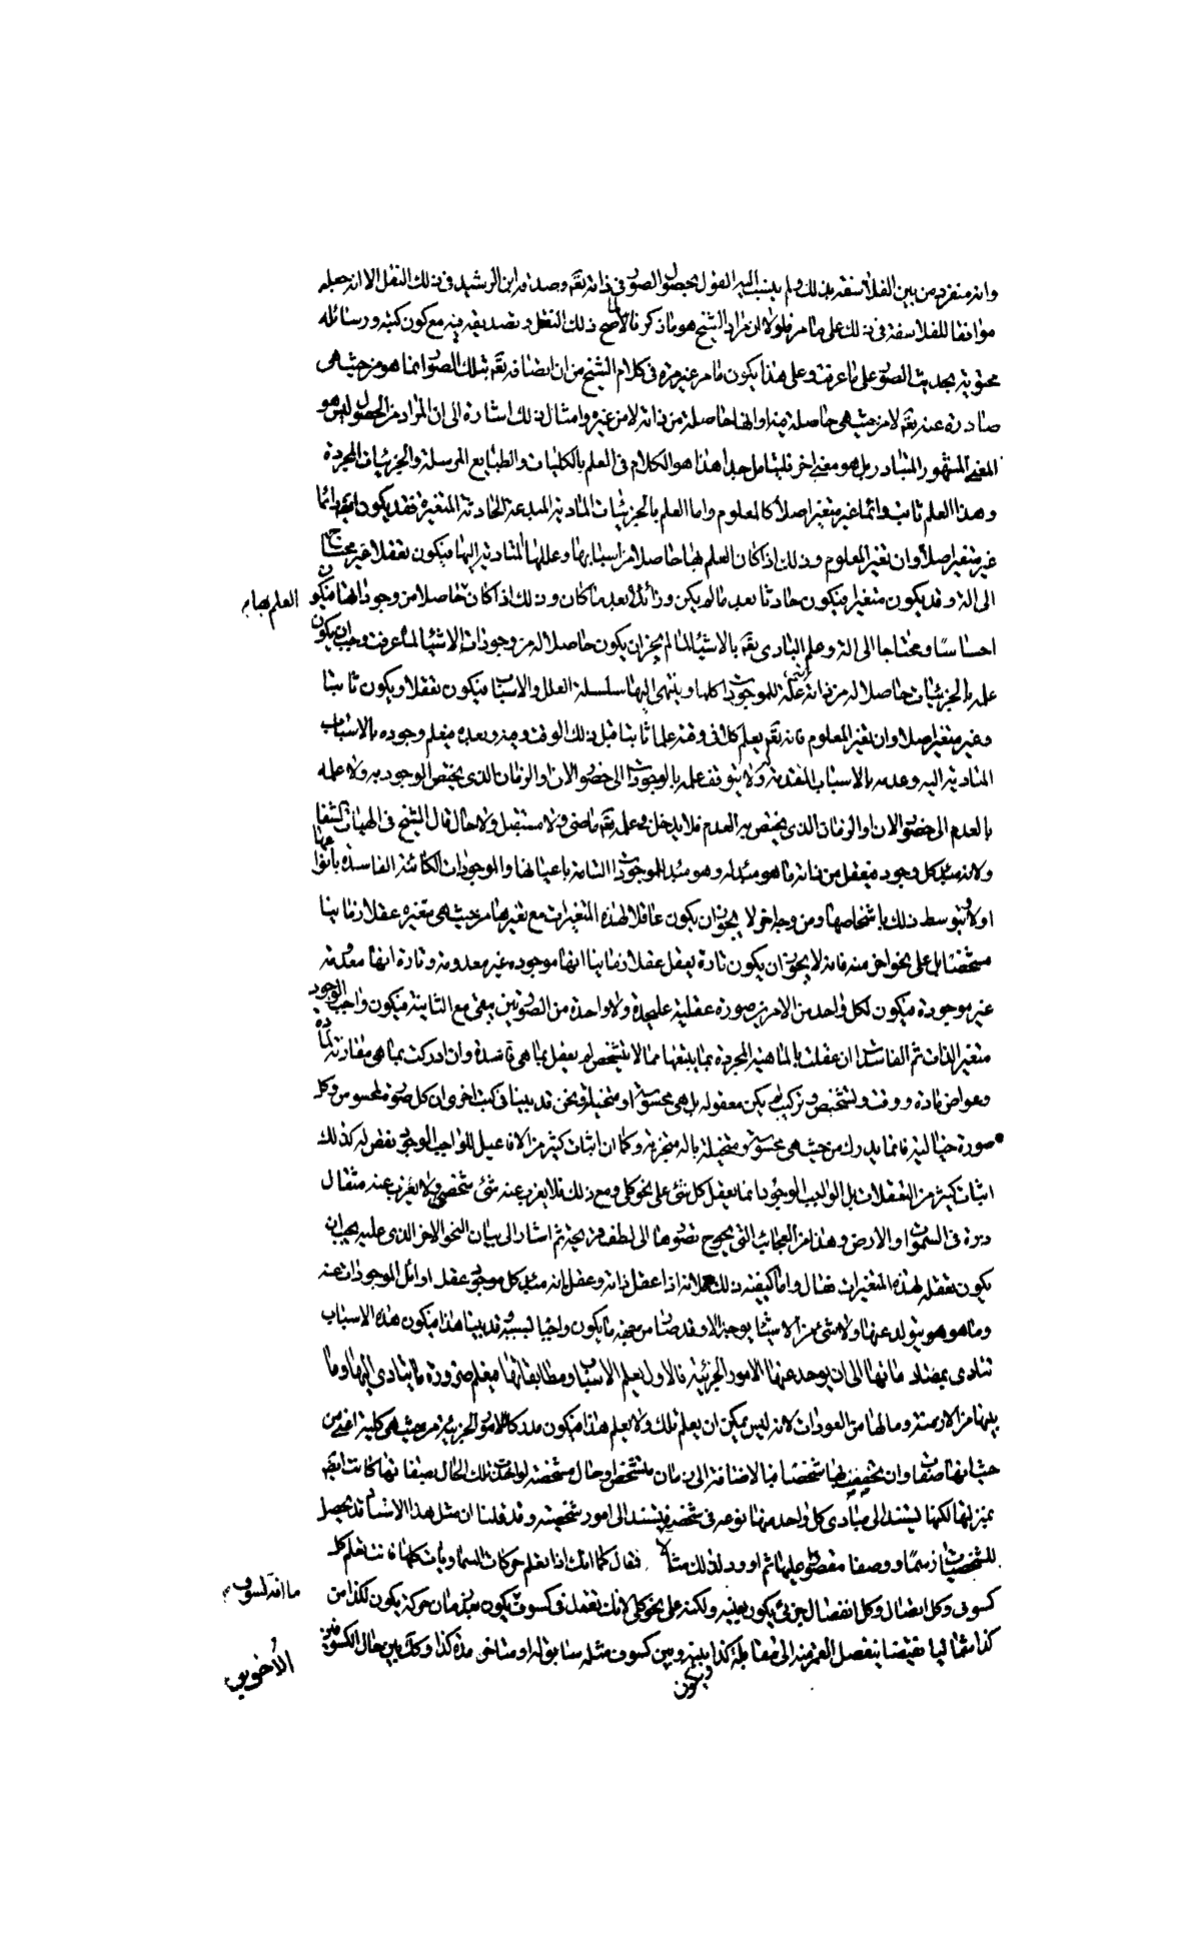 وانه منفرد من بين الفلاسفة بذلك ولم ينسب اليه القول بحصول الصور فى ذاته تعَ وصدقه ابن الرشيد فى ذلك النقل الا انه جعله
موافقا للفلاسفة فى ذلك على ما مر فلولا ان مراد الشيخ هو ما ذكرنا لما صح ذلك النقل و تصديقه فيه مع كون كتبه ورسائله
محتوية بحديث الصور على ما عرفت وعلى هذا يكون ما مر غير مرة فى كلام الشيخ من ان اتصافه تعَ بتلك الصور انما هو من حيث هى
صادرة عنه تعَ لا من حيث هى حاصلة فيه او انها حاصلة من ذاته لا من غيره وامثال ذلك اشارة الى ان المراد من الحصول ليس هو
المعنى المشهور المتبادر بل هو معنى اخر فليتامل جدا هذا هو الكلام فى العلم بالكليات والطبايع المرسلة والجزئيات المجردة
وهذا العلم ثابت دائما غير متغير اصلا كالمعلوم واما العلم بالجزئيات المادية المبدعة الحادثة المتغيرة فقد يكون ايضا دائما
غير متغير اصلا وان تغير المعلوم وذلك اذا كان العلم بها حاصلا من اسبابها وعللها المتادية اليها فيكون تعقلا غير محتاج
الى الة وقد يكون متغيرا فيكون حادثا بعد ما لم يكن وزائلا بعد ما كان وذلك اذا كان حاصلا من وجوداتها فيكون العلم بها
احساسا ومحتاجا الى الة وعلم البارى تعَ بالاشياء لما لم يجز ان يكون حاصلا له من وجودات الاشياء لما عرفت وجب ان يكون
علمه بالجزئيات حاصلا له من ذاته التى علة للموجودات كلها وينتهى اليها سلسلة العلل والاسباب فيكون تعقلا ويكون ثابتا
وغير متغير اصلا وان تغير المعلوم فانه تعَ يعلم كلا فى وقته علما ثابتا قبل ذلك الوقت وفيه وبعده فيعلم وجوده بالاسباب
المتادية اليه وعدمه بالاسباب المفقدمة ولا يتوقف علمه بالوجودات الى حضور الان او الزمان الذى يختص الوجود به ولا علمه
بالعدم الى حضور الان او الزمان الذى يختص به العدم فلا يدخل فى علمه تعَ ماضى ولا مستقبل ولا حال قال الشيخ فى الهيات الشفا
ولانه مبدء كل وجود فيعقل من ذاته ما هو مبدء له وهو مبدء للموجودات التامة باعيانها والموجودات الكائنة الفاسدة بانواعها
اولا وبتوسط ذلك باشخاصها ومن وجه اخر لا يجوز ان يكون عاقلا لهذه المتغيرات مع تغيرها من حيث هى متغيرة عقلا زمانيا
مشخصا بل على نحو اخر منه فانه لا يجوز ان يكون تارة يعقل عقلا زمانيا انها موجودة غير معدومة وتارة انها معدومة
غير موجودة فيكون لكل واحد من الامرين صورة عقلية عليحدة ولا واحدة من الصورتين يبقى مع الثانية فيكون واجب الوجود
متغير الذات ثم الفاسدات ان عقلت بالماهية المجردة بما يتبعها مما لا يتشخص لم يعقل بما هى فاسدة وان ادركت بما هى مقارنة لمادة
وعوارض مادة ووقت وتشخص وتركيب لم يكن معقولة بل هى محسوسة او متخيلة ونحن قد بينا فى كتب اخرى ان كل صورة لمحسوس وكل
صورة خيالية فانما يدرك من حيث هى محسوسة ومتخيلة بالة متجزية وكما ان اثبات كثير من الافاعيل للواجب الوجود نقص له كذلك
اثبات كثير من التعقلات بل الواجب الوجود انما يعقل كل شئ على نحو كلى ومع ذلك فلا يعزب عنه شئ شخصى ولا يعزب عنه مثقال
ذرة فى السموات او الارض وهذا من العجائب التى يحوج تصورها الى لطف قريحة ثم اشار الى بيان النحو الاخر الذى عليه يجب ان
يكون تعقله لهذه المتغيرات فقال واما كيفية ذلك فلانه اذا عقل ذاته وعقل انه مبدء كل موجود عقل اوائل الموجودات عنه
وما هو هو يتولد عنها ولا شئ من الاشياء يوجد الا وقد صار من جهة ما يكون واجبا بسببه قد بينا هذا فيكون هذه الاسباب
تتادى بمصادماتها الى ان يوجد عنها الامور الجزئية فالاول يعلم الاسباب ومطابقاتها فيعلم ضرورة ما يتادى اليها وما
بينها من الازمنة وما لها من العودات لانه ليس يمكن ان يعلم تلك ولا يعلم هذا فيكون مدركا للامور الجزئية من حيث هى كلية اعنى من
حيث انها صفات وان تخصصت بها شخصا فبالاضافة الى زمان متشخص او حال مشخصة لو اخذت تلك الحال بصفاتها كانت ايضا
بمنزلتها لكنها يستند الى مبادى كل واحد منها نوعه فى شخصه فيستند الى امور شخصية وقد قلنا ان مثل هذا الاستناد قد يجعل
للشخصيات رسما ووصفا مقصورا عليها ثم اورد لذلك مثالا فقال كما انك اذا تعلم حركات السماويات كلها فانت تعلم كل
كسوف وكل اتصال وكل انفصال جزئى يكون بعينه ولكنه على نحو كلى لانك تعقل فى كسوف ما انه كسوف يكون بعد زمان حركة يكون لكذا من
كذا شماليا نصفيا ينفصل القمر منه الى مقابلة كذا ويكون بينه وبين كسوف مثله سابق له او متاخر مدة كذا وكذلك بين حال الكسوفين
الاخريين